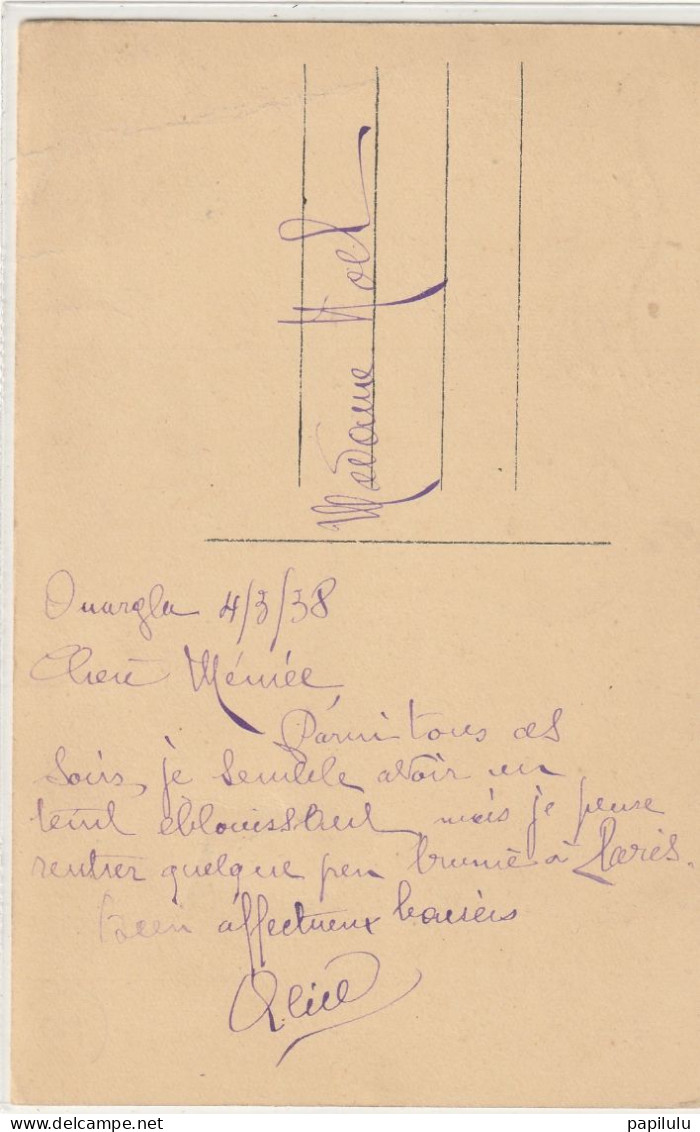 Madame Noel
Ouargla 4/3/38
Chère Mémée,
Parmi tous ces
soirs, je semble avoir un
teint éblouissant, mais je pense
rentrer quelque peu brunie à Paris.
bien affectueux baisers
Alice
delcampe.net
papilulu